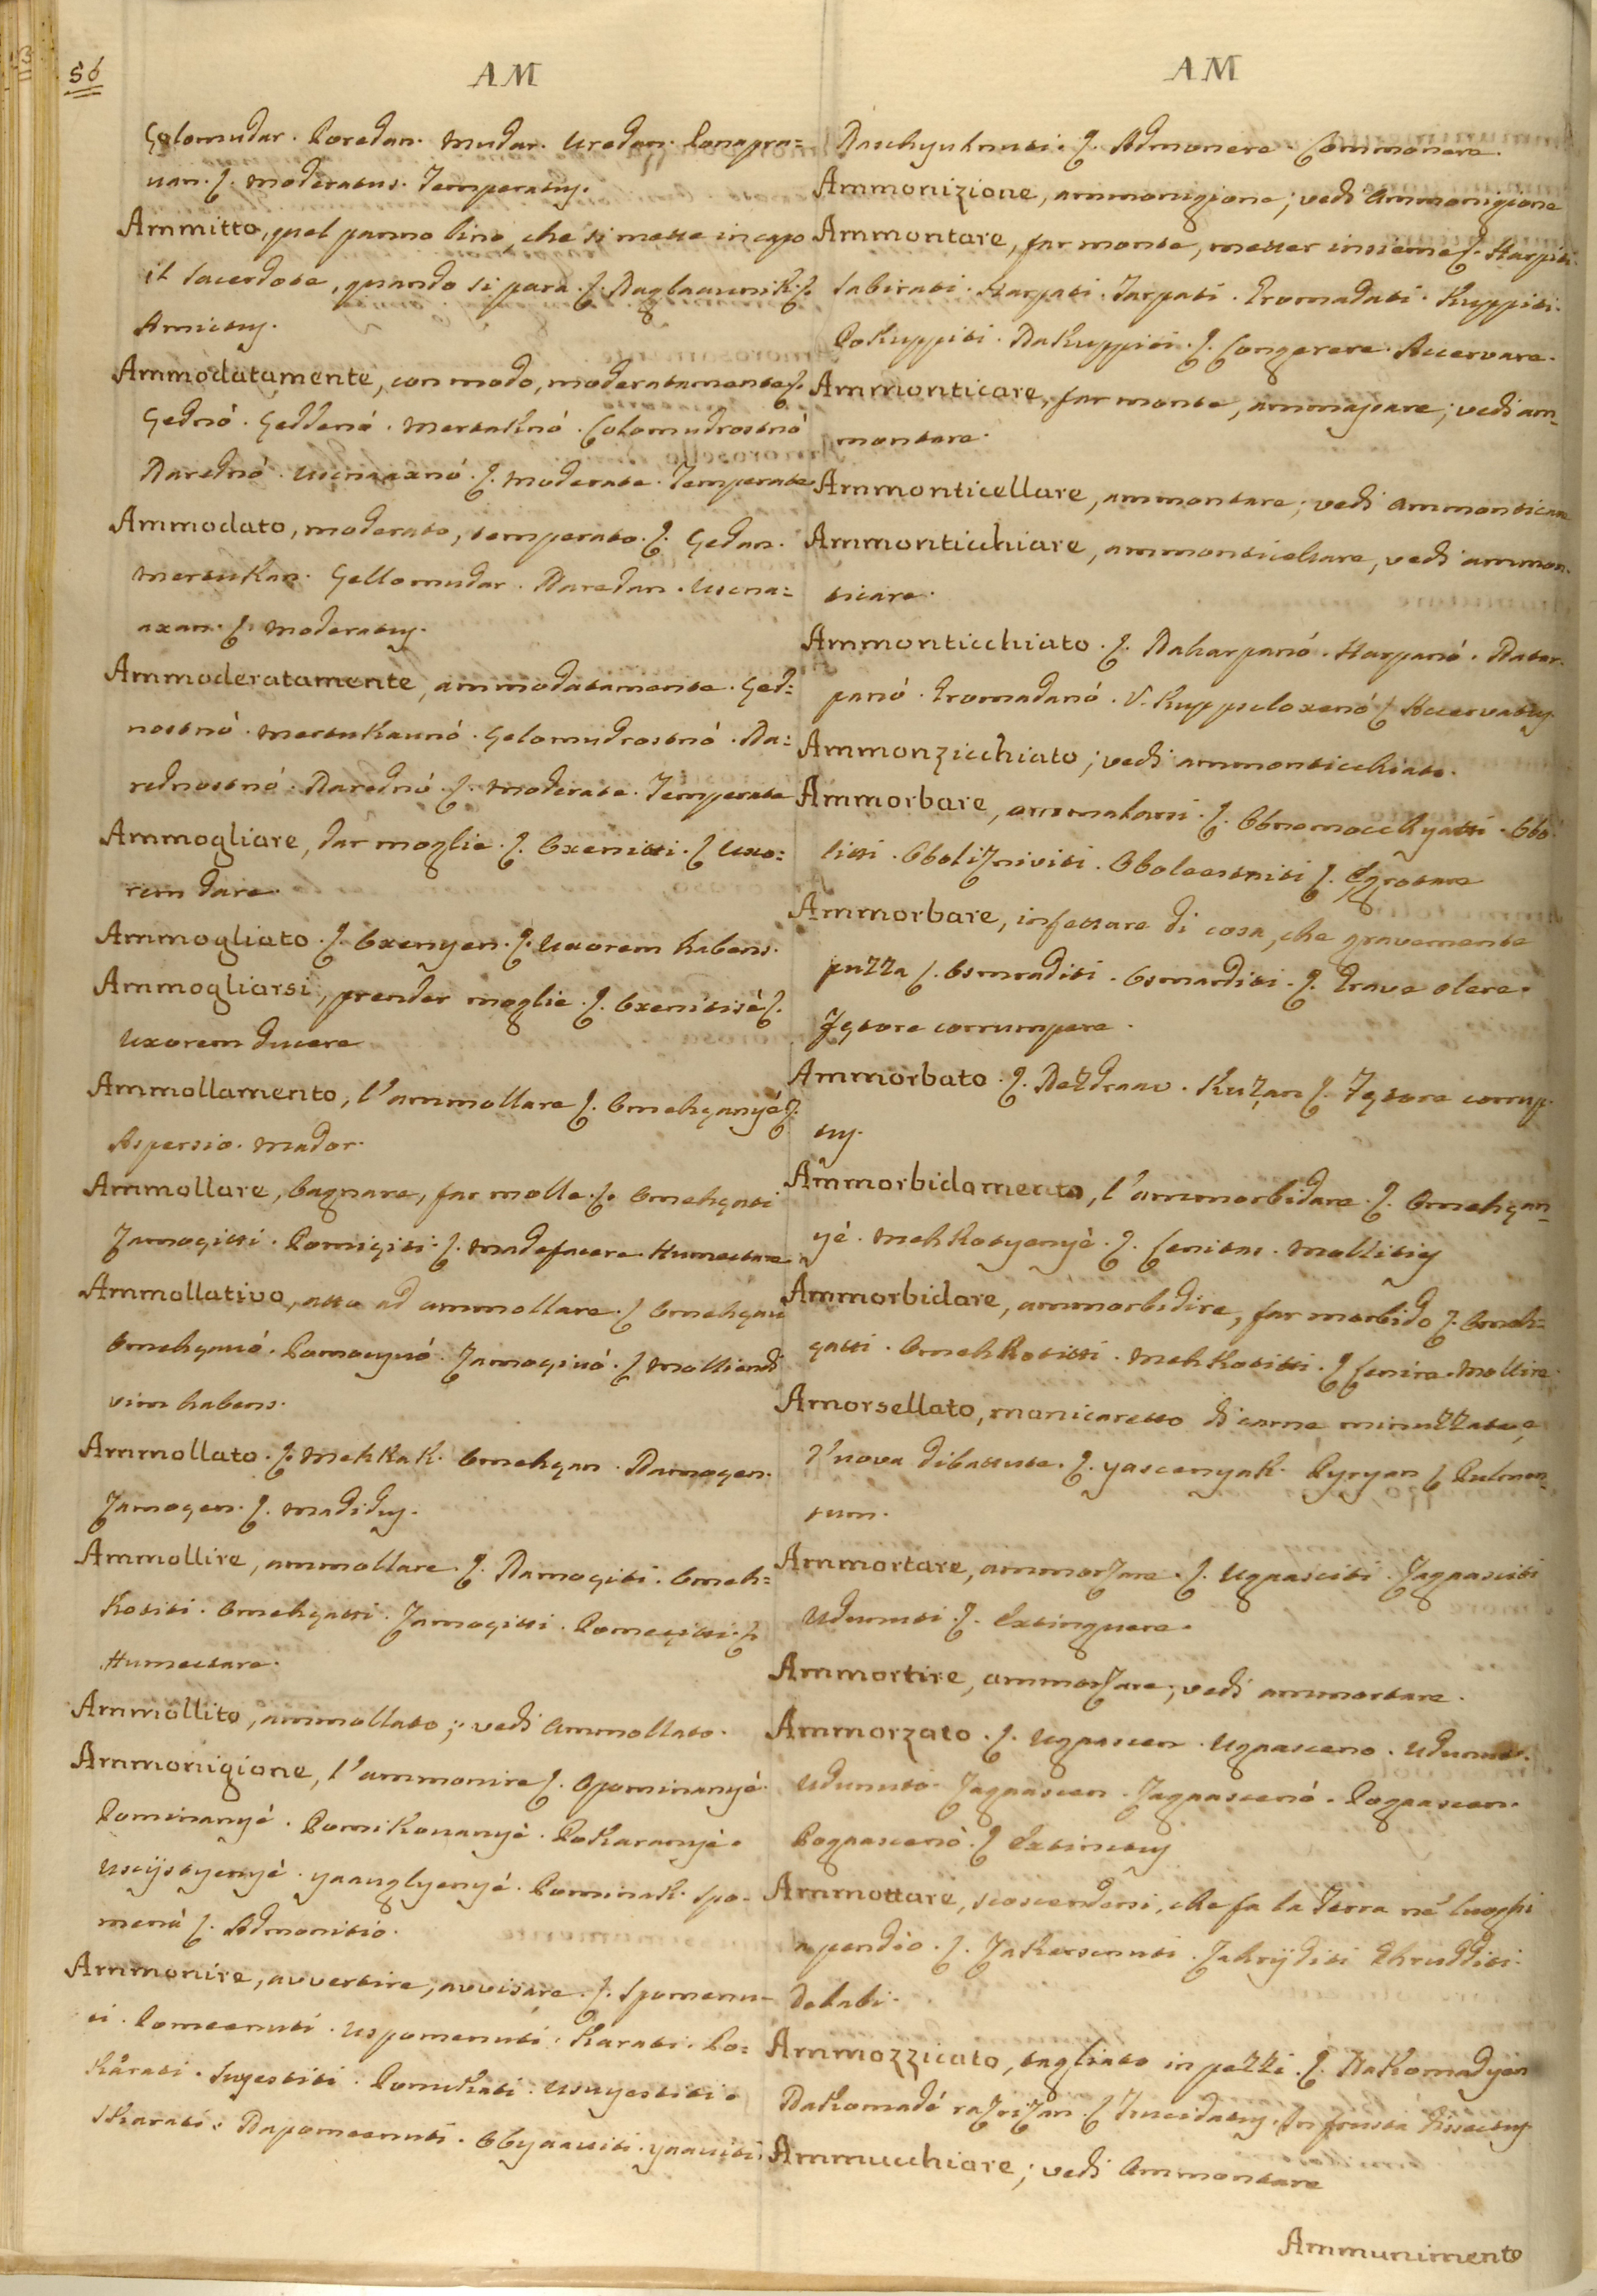 56
AM
Çolomudar. Poredan. Mudar. Uredan. Ponapra=
uan. ſ. Moderatus. Temperatus.
Ammitto, quel panno lino, che si mette in capo
il Sacerdote, quando si para. ſ. Naglaunik. ſ.
Amictus.
Ammodatamente, con modo, moderatamente ſ.
Gednó. Geddenó. Mertaknó. Çolomudrostnó
Narednó. ſ. Moderate. Temperate
Ammodato, moderato, temperato. ſ. Gedan.
Mertukan. Çellomudar. Naredan. Uscna=
axan. ſ. Moderatus.
Ammoderatamente, ammodatamente. Ged=
nostnó. Mertukaunó. Çelomudrostnó. Na=
rednostnó. Narednó. ſ. Moderate. Temperate
Ammogliare, dar moglie. ſ. Oxenitti. ſ. Uxo=
rem dare.
Ammogliato. ſ. Oxenyen. ſ. Uxorem habens.
Ammogliarsi, prender moglie. ſ. Oxenitisè ſ.
Uxorem ducere
Ammollamento, l'ammollare ſ. Omehçanyé ſ.
Aspersio. Mador.
Ammollare, bagnare, far molle. ſ. Omehçati
Zamoçitti. Pomiçiti. ſ. Madefacere. Humectare
Ammollativo, atto ad ammollare. ſ. Omehçau
Omehçauó. Zamoçiuó. ſ. Molliendi
vim habens.
Ammollato. ſ. Mehkak. Omehçan. Namoçen.
Zamoçen. ſ. Madidus.
Ammollire, ammollare. ſ. Namoçiti. Omeh=
kotiti. Omehçatti. Zamoçitti. Pomeçitti. ſ.
Humectare.
Ammollito, ammollato; vedi Ammollato.
Ammonigione, l'ammonire ſ. Opominanyé.
Pominanyé. Pomikouanyé. Pokaranyè.
Usciystyenyé. yaauglyenyé. Pominak. Spo-
mena ſ. Admonitio.
Ammonire, avvertire, avvisare. ſ. Spomenu-
ti. Pomeenuti. Uspomenuti. Karati. Po=
karati. Svyestiti. Ponukati. Usuyestiti.
Skarati. Napomeenuti. Obyaauiti. yaauiti.
AM
ſ. Admonere. Commonere.
Ammonizione, ammonigione; vedi Ammonigione
Ammontare, far monte, metter insieme ſ. Harpiti.
Sabirati. Harpati. Tarpati. Gromadati. Kuppiti.
Pokuppiti. Nakuppiti. ſ. Congerere. Accervare.
Ammonticare, far monte, ammassare; vedi am=
montare.
Ammonticellare, ammontare; vedi ammonticare
Ammonticchiare, ammonticellare, vedi ammon.
ticare.
Ammonticchiato. ſ. Naharpanó. Harpanó. Natar.
panó. Gromadanó. V. Kuppucloxenó ſ. Accervatus.
Ammonzicchiato; vedi ammonticchiato.
Ammorbare, ammalarsi. ſ. Obnemocchyatti. Obo=
litti. Obolizniviti. Oboleestniti ſ. Egrotare
Ammorbare, infettare di cosa, che gravemente
puzza ſ. Osmraditi. Osmarditi. ſ. Grave olere.
Fętore corrumpere.
Ammorbato. ſ. Nezdraau. Kużan ſ. Fętore corrup.
tus.
Ammorbidamento, l'ammorbidare. ſ. Omehçan=
yé. Mehkotyenyè. ſ. Lenitas. Mollities
Ammorbidare, ammorbidire, far morbido ſ. Omeh=
çatti. Omehkotitti. Mehkotitti. ſ. Lenire. Mollire
Amorsellato, manicaretto di carne minuzzata, e
d'uova dibattute. ſ. yascenyak. Pyryan ſ. Pulmen=
tum.
Ammortare, ammorzare. ſ. Ugaasciti. Zagaasciti
Udunuti. ſ. Extinguere.
Ammortire, ammorzare; vedi ammortare.
Ammorzato. ſ. Ugaascen. Ugaasceno. Udunut.
Udunuto. Zagaascen. Zagaascenó. Pogaascen.
Pogaascenó. ſ. Extinctus
Ammottare, scoscendersi, che fa la Terra nè luoghi
a pendio. ſ. Zakersenuti. Zahriyditi Obruśśiti.
Delabi.
Ammozzicato, tagliato in pezzi. ſ. Nakomadyen
Nakomadé razrizan. ſ. Trucidatus. In frusta dissectus
Ammucchiare; vedi Ammontare
Ammunimento